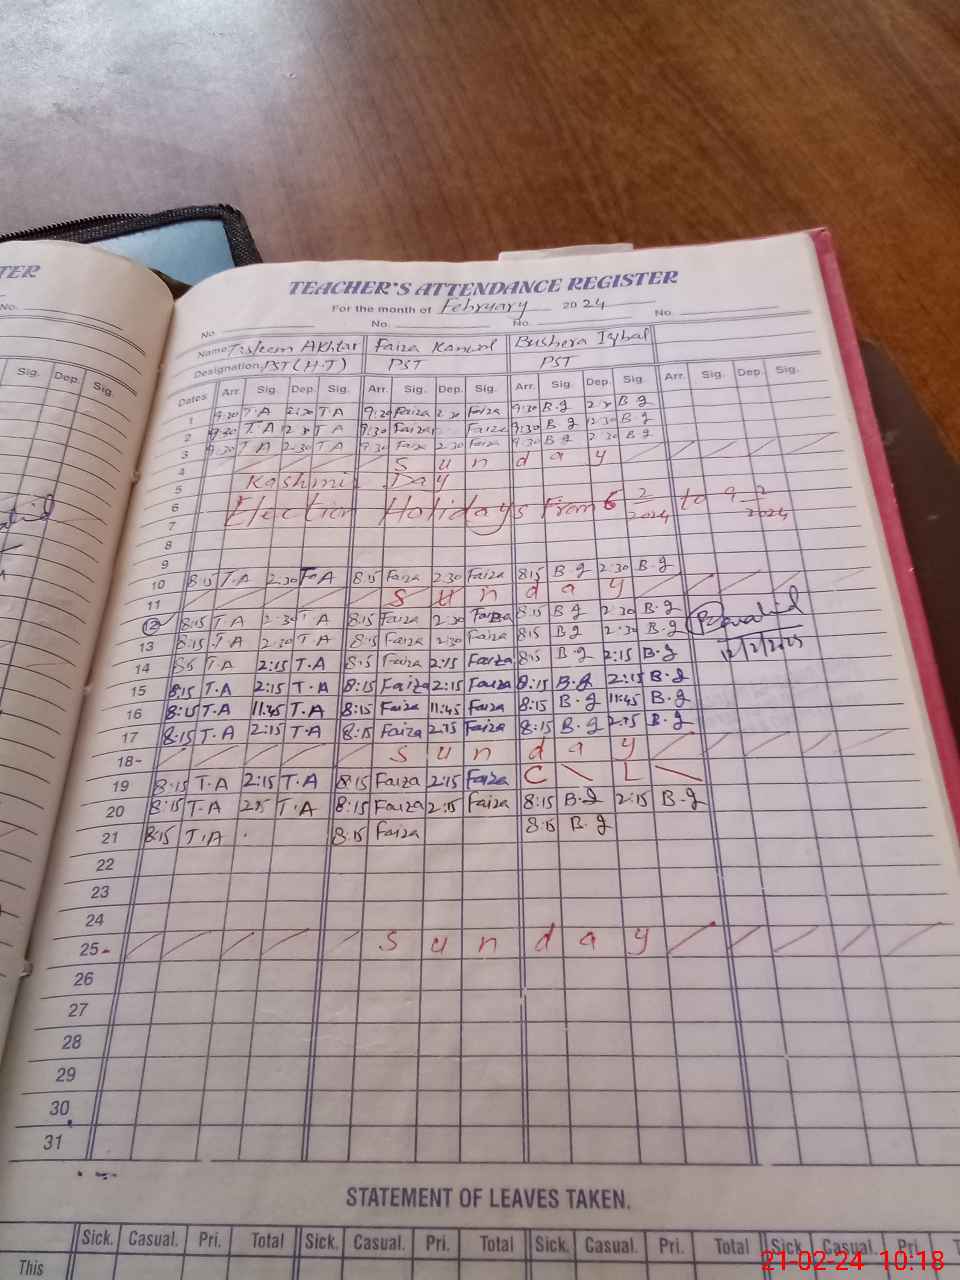 TER
TEACHER'S ATTENDANCE REGISTER
For the month of February 2024
No. No. No. No. No.
Name Tasleem Akhtar Faiza Kanwal Bushera Iqbal
Designation. PST (H.T) PST PST
Sig. Dep. Sig.
Dates Arr. Sig. Dep. Sig. Arr. Sig. Dep. Sig. Arr. Sig. Dep. Sig. Arr. Sig. Dep. Sig.
1 9:30 T.A 2:30 T.A 9:30 Faiza 2:30 Faiza 9:30 B.g 2:30 B.g
2 9:30 T.A 2:30 T.A 9:30 Faiza Faiza 9:30 B.g 2:30 B.g
3 9:30 T.A 2:30 T.A 9:30 Faiza 2:30 Faiza 9:30 B.g 2:30 B.g
4 S u n d a y
5 Kashmir Day
6 Election Holidays From 6 2/2024 to 9 2/2024
7
8
9
10 8:15 T.A 2:30 T.A 8:15 Faiza 2:30 Faiza 8:15 B.g 2:30 B.g
11 S u n d a y
12 8:15 T.A 2:30 T.A 8:15 Faiza 2:30 Faiza 8:15 B.g 2:30 B.g
13 8:15 T.A 2:30 T.A 8:15 Faiza 2:30 Faiza 8:15 B.g 2:30 B.g
14 8:15 T.A 2:15 T.A 8:15 Faiza 2:15 Faiza 8:15 B.g 2:15 B.g
15 8:15 T.A 2:15 T.A 8:15 Faiza 2:15 Faiza 8:15 B.g 2:15 B.g
16 8:15 T.A 11:45 T.A 8:15 Faiza 11:45 Faiza 8:15 B.g 11:45 B.g
17 8:15 T.A 2:15 T.A 8:15 Faiza 2:15 Faiza 8:15 B.g 2:15 B.g
18- S u n d a y
19 8:15 T.A 2:15 T.A 8:15 Faiza 2:15 Faiza C \ L \
20 8:15 T.A 2:15 T.A 8:15 Faiza 2:15 Faiza 8:15 B.g 2:15 B.g
21 8:15 T.A 8:15 Faiza 8:15 B.g
22
23
24
25- S u n d a y
26
27
28
29
30
31
STATEMENT OF LEAVES TAKEN.
Sick. Casual. Pri. Total Sick. Casual. Pri. Total Sick. Casual. Pri. Total Sick. Casual. Pri.
This
21-02-24 10:18